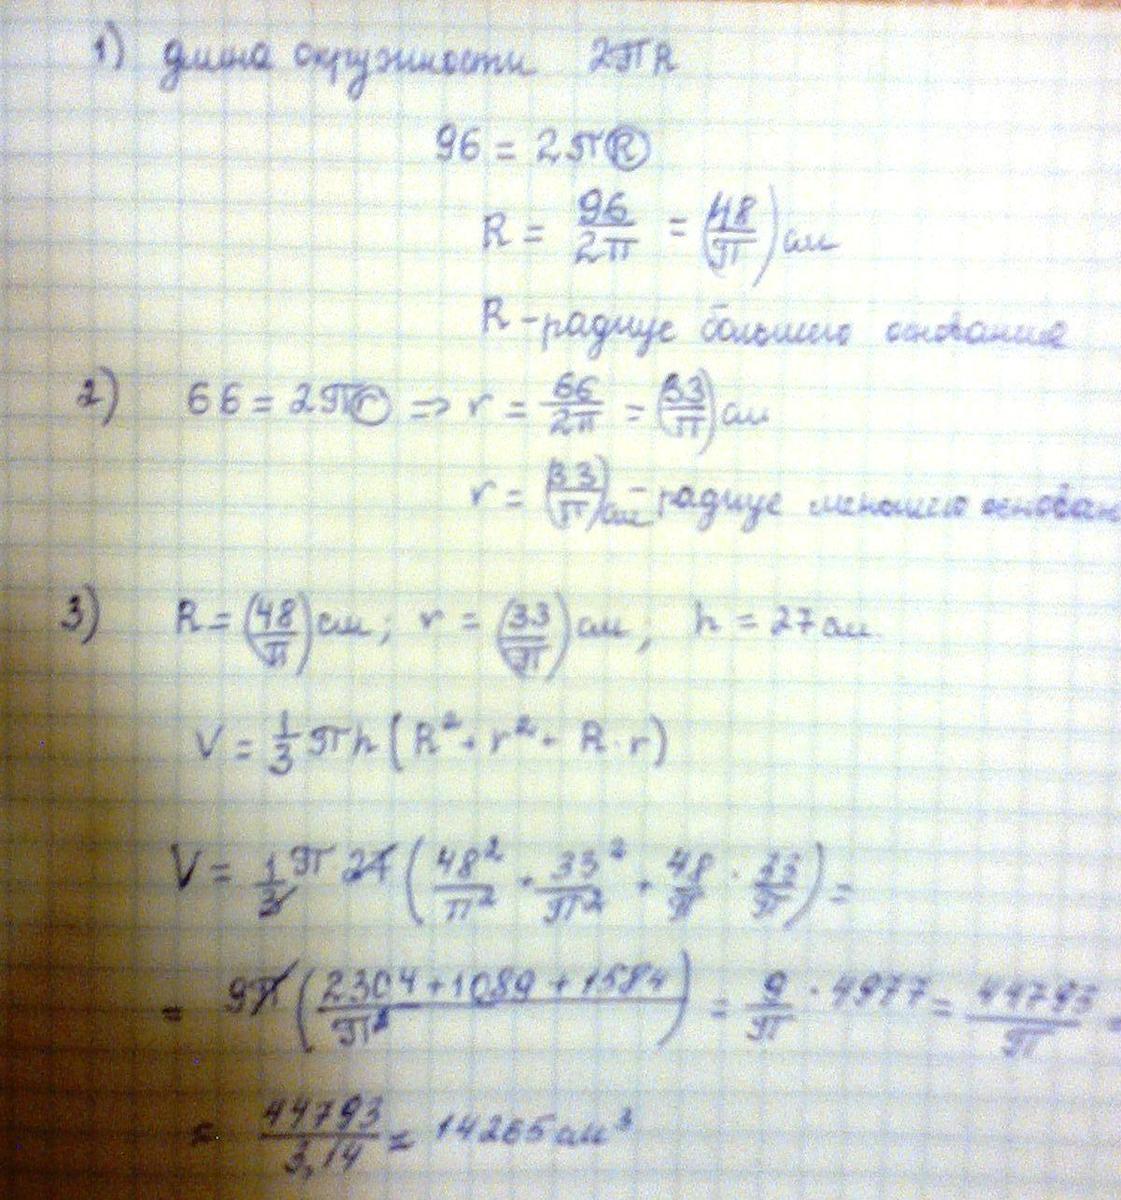 1) длина окружности 2πR
96 = 2πR
R = 96/2π = (48/π) см
R - радиус большего основания
2) 66 = 2πr ⇒ r = 66/2π = (33/π) см
r = (33/π) см - радиус меньшего основан
3) R = (48/π) см; r = (33/π) см; h = 27 см.
V = 1/3 πh (R² + r² + R · r)
V = 1/3 π 27 (48²/π² + 33²/π² + 48/π · 33/π) =
= 9π (2304 + 1089 + 1584/π²) = 9/π · 4977 = 44793/π =
= 44793/3,14 = 14265 см³